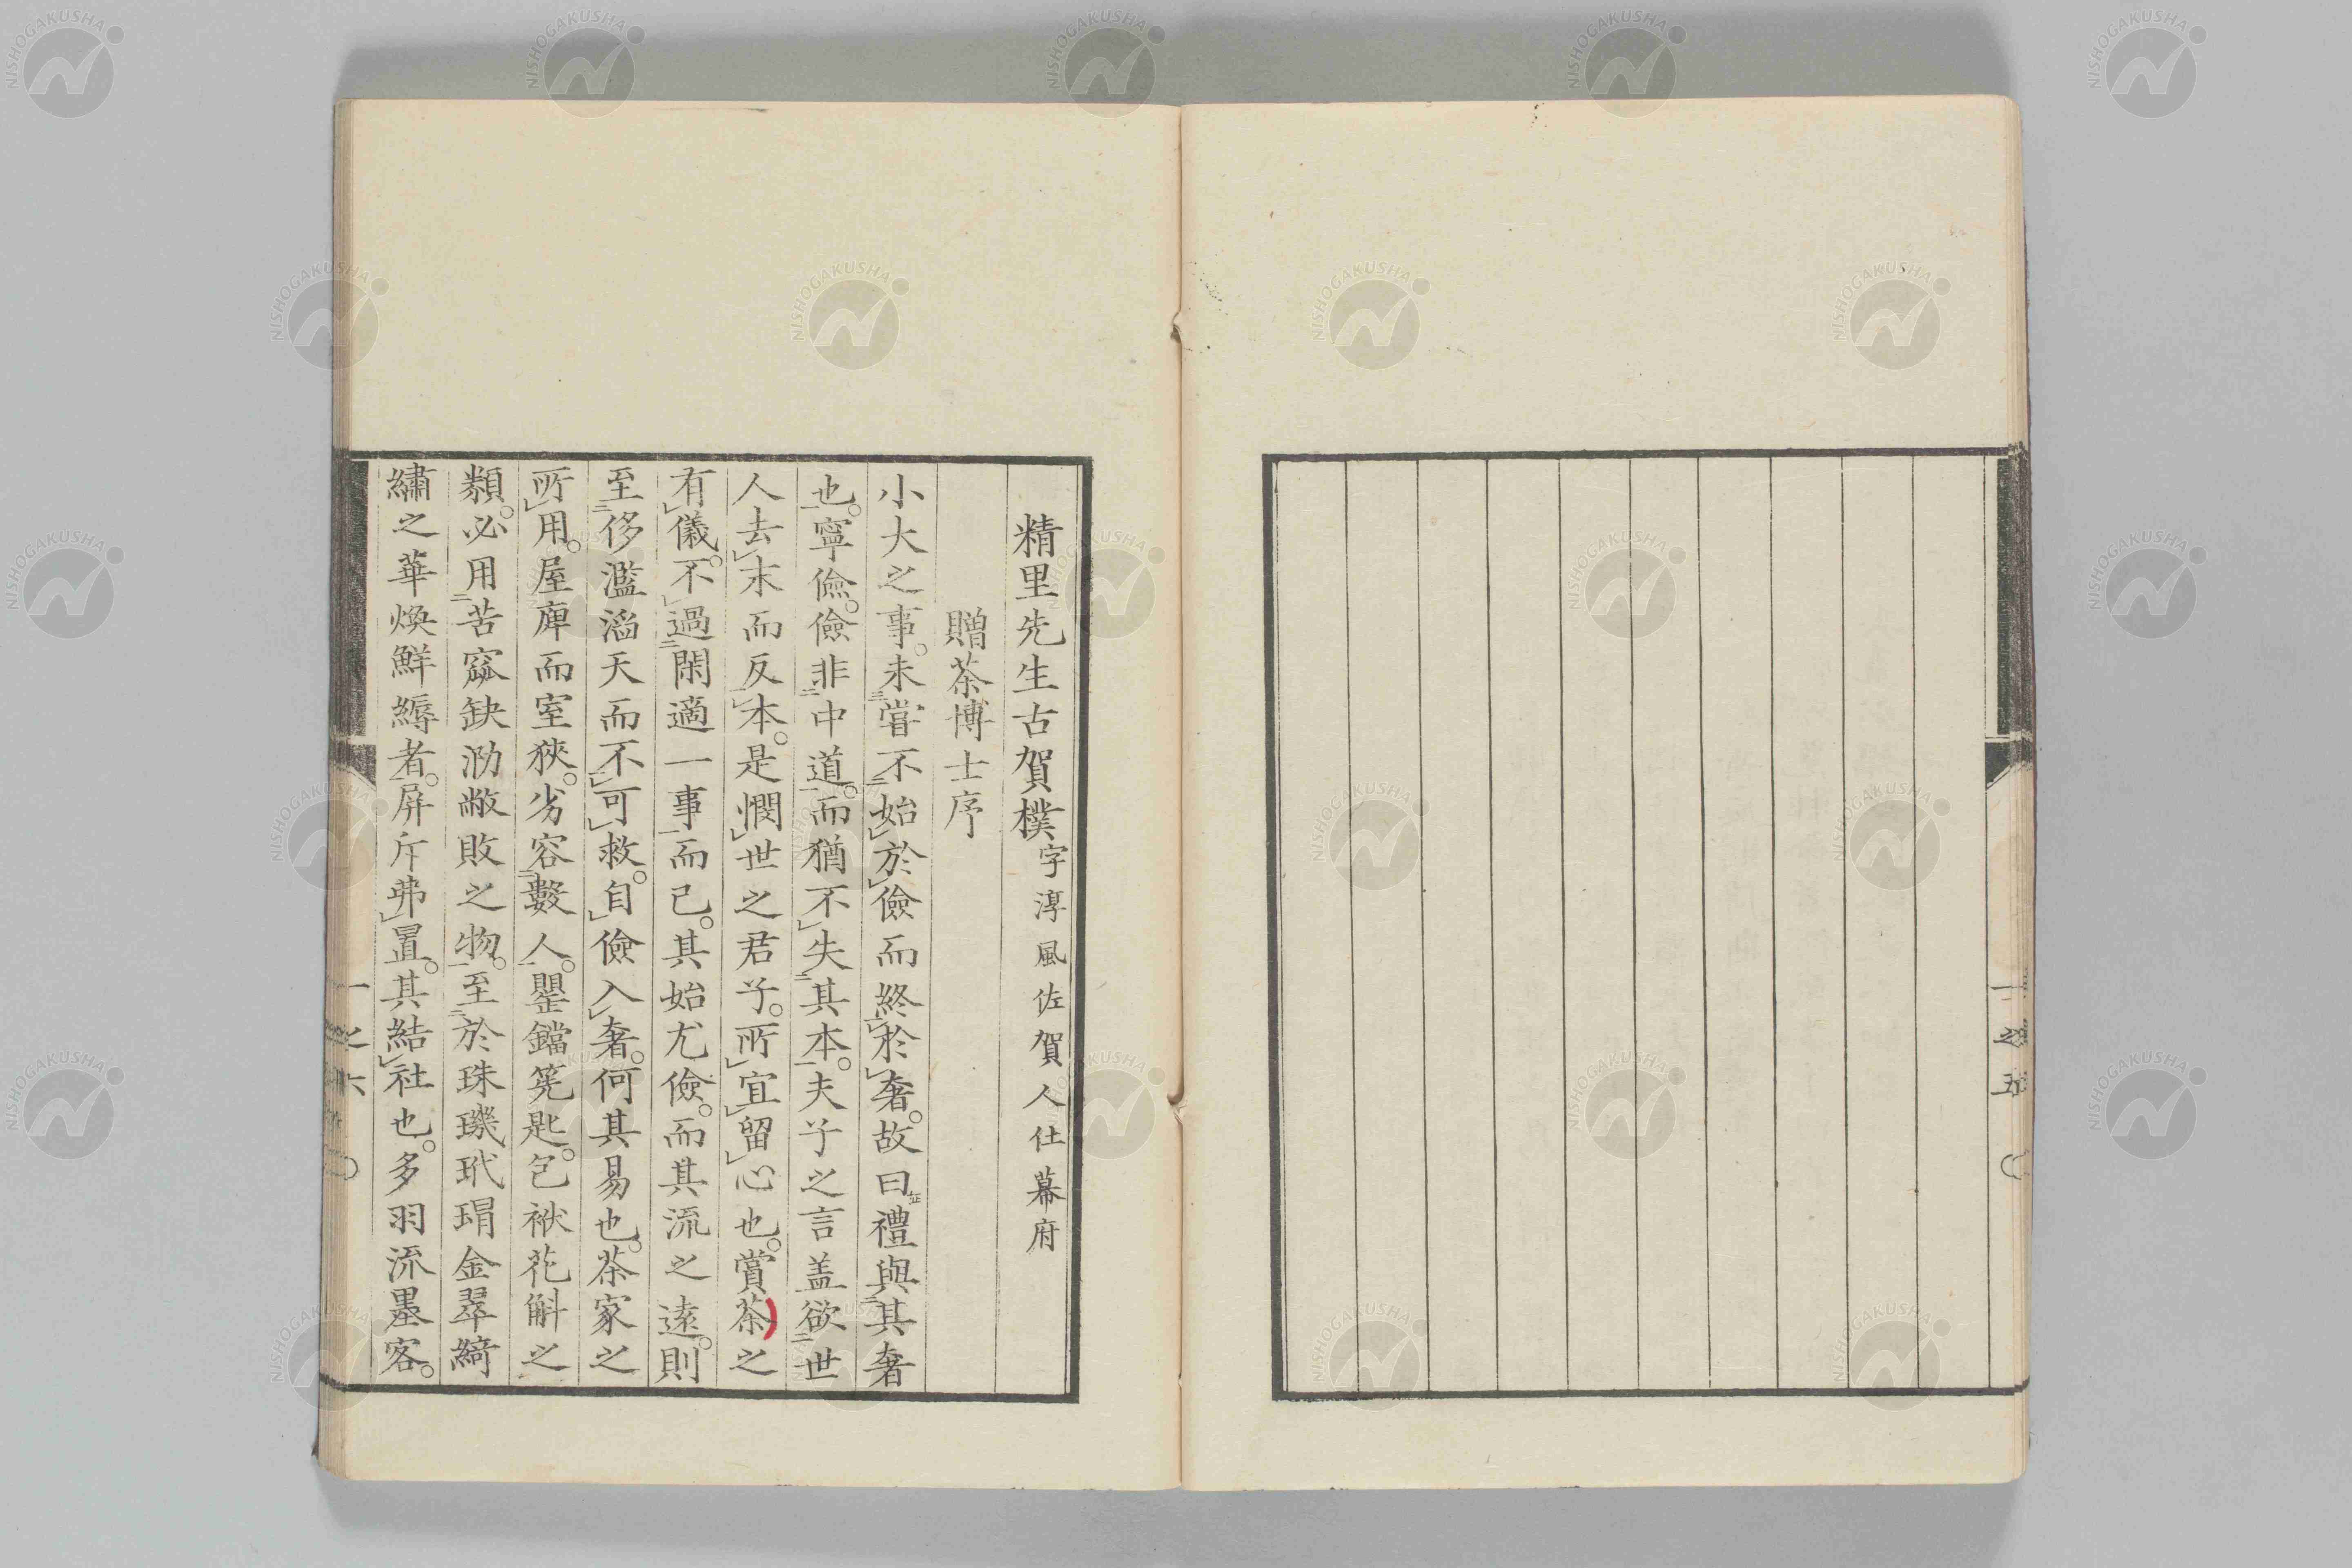 一之五
精里先生古賀樸字淳風佐賀人仕幕府
贈茶博士序
小大之事。未嘗不始於儉而終於奢。故曰禮與其奢
也。寧儉。儉非中道。而猶不失其本。夫子之言盖欲世
人去末而反本。是憫世之君子。所宜留心也。賞茶之
有儀。不過閑適一事而已。其始尤儉。而其流之遠。則
至侈濫滔天而不可救。自儉入奢。何其易也。茶家之
所用。屋庳而室狹。劣容數人。罌鐺筅匙。包袱花斛之
類。必用苦窳缺泐敝敗之物。至於珠璣玳瑁金翠綺
繡之華煥鮮縟者。屏斥弗置。其結社也。多羽流墨客。
一之六
NISHOGAKUSHA